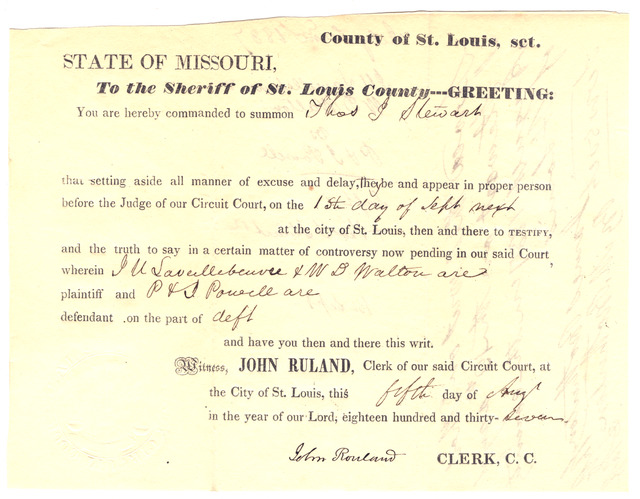 County of St. Louis, sct.
STATE OF MISSOURI,
To the Sheriff of St. Louis County---GREETING:
You are hereby commanded to summon Thos J Stewart
that setting aside all manner of excuse and delay, they be and appear in proper person
before the Judge of our Circuit Court, on the 15th day of Sept next
at the city of St. Louis, then and there to TESTIFY,
and the truth to say in a certain matter of controversy now pending in our said Court
wherein & W D Walton are
plaintiff and P & J Powell are
defendant .on the part of deft
and have you then and there this writ.
Witness, JOHN RULAND, Clerk of our said Circuit Court, at
the City of St. Louis, this fifth day of Augt
in the year of our Lord, eighteen hundred and thirty-seven
John Ruland CLERK, C. C.